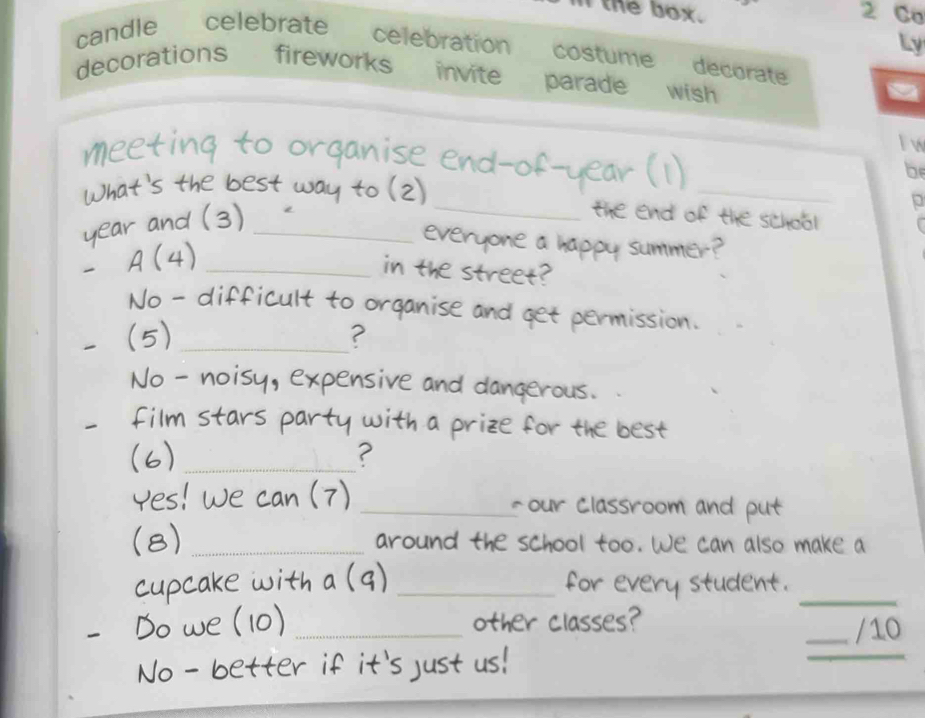 the box.
2 Co
Ly
candle celebrate celebration costume decorate
decorations fireworks invite parade wish
I w
be
meeting to organise end-of-year (1) ____
What's the best way to (2) ____ the end of the school
year and (3) ____ everyone a happy summer?
- A (4) ____ in the street?
No - difficult to organise and get permission.
- (5) ____ ?
No - noisy, expensive and dangerous.
- film stars party with a prize for the best
(6) ____ ?
Yes! We can (7) ____ our classroom and put
(8) ____ around the school too. We can also make a
cupcake with a (9) ____ for every student.
- Do we (10) ____ other classes?
No - better if it's just us!
__ /10